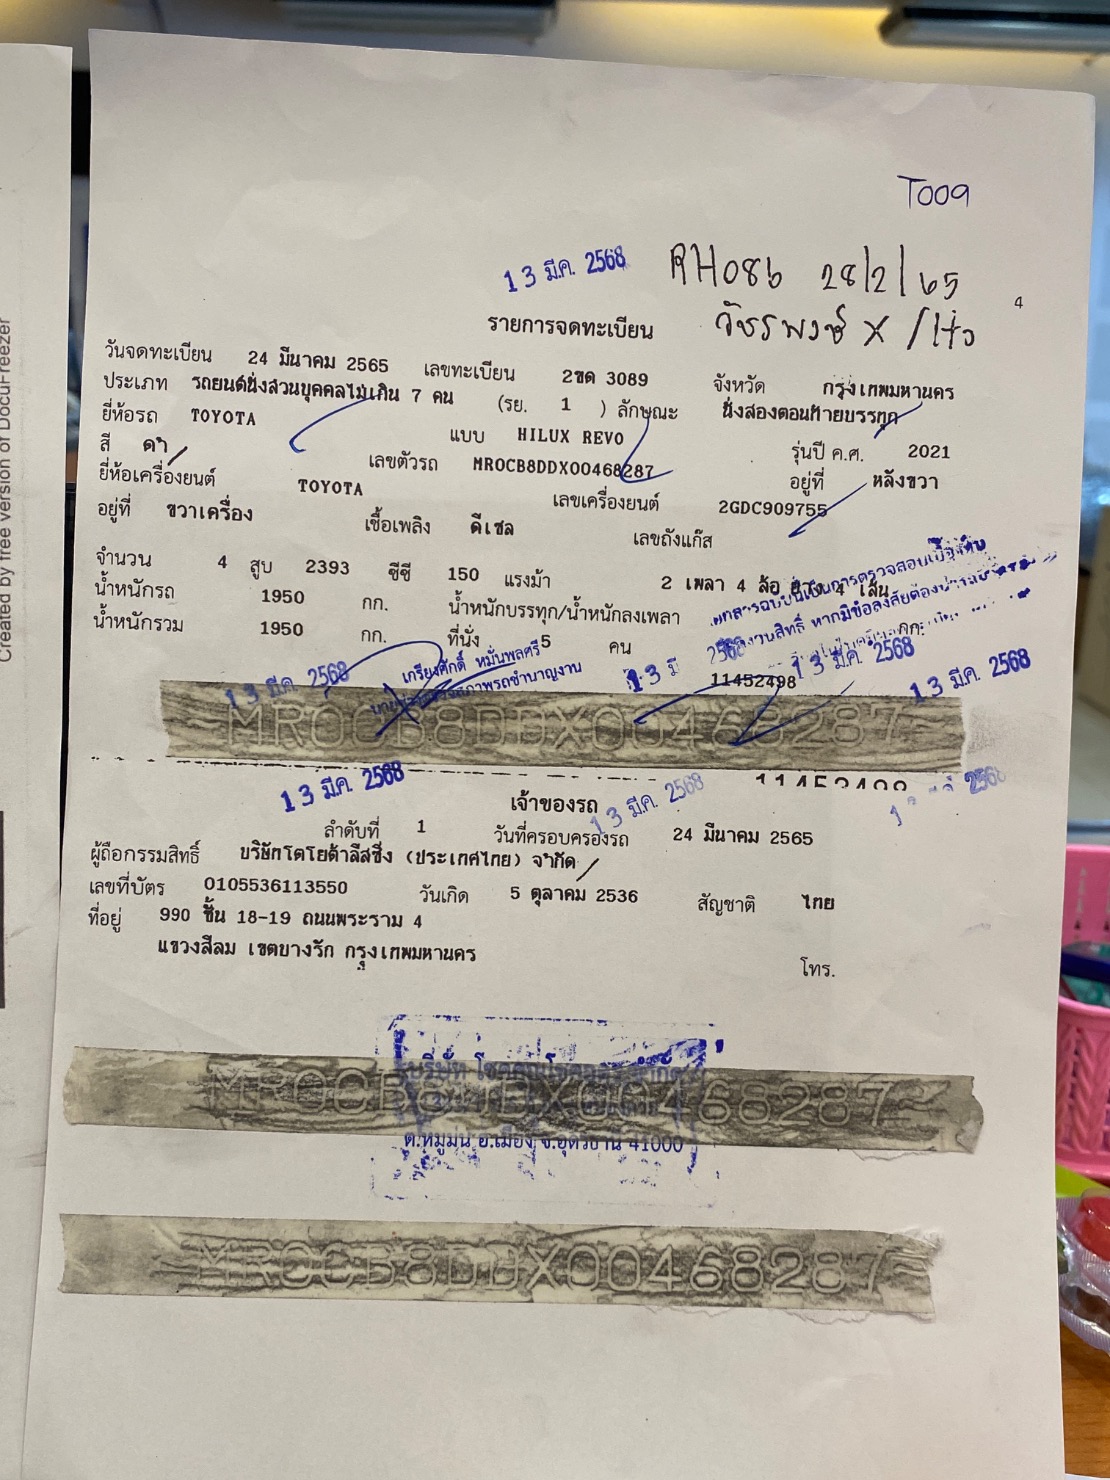 T009
13 มี.ค. 2568
RH086 28/2/65
4
รายการจดทะเบียน
วันจดทะเบียน 24 มีนาคม 2565 เลขทะเบียน 2ขด 3089 จังหวัด กรุงเทพมหานคร
ประเภท รถยนต์นั่งส่วนบุคคลไม่เกิน 7 คน (รย. 1 ) ลักษณะ นั่งสองตอนท้ายบรรทุก
ยี่ห้อรถ TOYOTA แบบ HILUX REVO รุ่นปี ค.ศ. 2021
สี ดำ เลขตัวรถ MR0CB8DDX00468287 อยู่ที่ หลังขวา
ยี่ห้อเครื่องยนต์ TOYOTA เลขเครื่องยนต์ 2GDC909755
อยู่ที่ ขวาเครื่อง เชื้อเพลิง ดีเซล เลขถังแก๊ส
จำนวน 4 สูบ 2393 ซีซี 150 แรงม้า 2 เพลา 4 ล้อ ยาง 4 เส้น
น้ำหนักรถ 1950 กก. น้ำหนักบรรทุก/น้ำหนักลงเพลา กก.
น้ำหนักรวม 1950 กก. ที่นั่ง 5 คน
เกรียงศักดิ์ หมั่นพลศรี
13 มี.ค. 2568
13 มี 2568
13 มี.ค. 2568
13 มี.ค. 2568
11452498
MR0CB8DDX00468287
13 มี.ค. 2568
13 มี.ค. 2568
เจ้าของรถ
ลำดับที่ 1 วันที่ครอบครองรถ 24 มีนาคม 2565
ผู้ถือกรรมสิทธิ์ บริษัทโตโยต้าลีสซิ่ง (ประเทศไทย) จำกัด
เลขที่บัตร 0105536113550 วันเกิด 5 ตุลาคม 2536 สัญชาติ ไทย
ที่อยู่ 990 ชั้น 18-19 ถนนพระราม 4
แขวงสีลม เขตบางรัก กรุงเทพมหานคร
โทร.
บริษัท
MR0CB8DDX00468287
ต.หมูม่น อ.เมือง จ.อุดรธานี 41000
MR0CB8DDX00468287
Created by free version of DocuFreezer